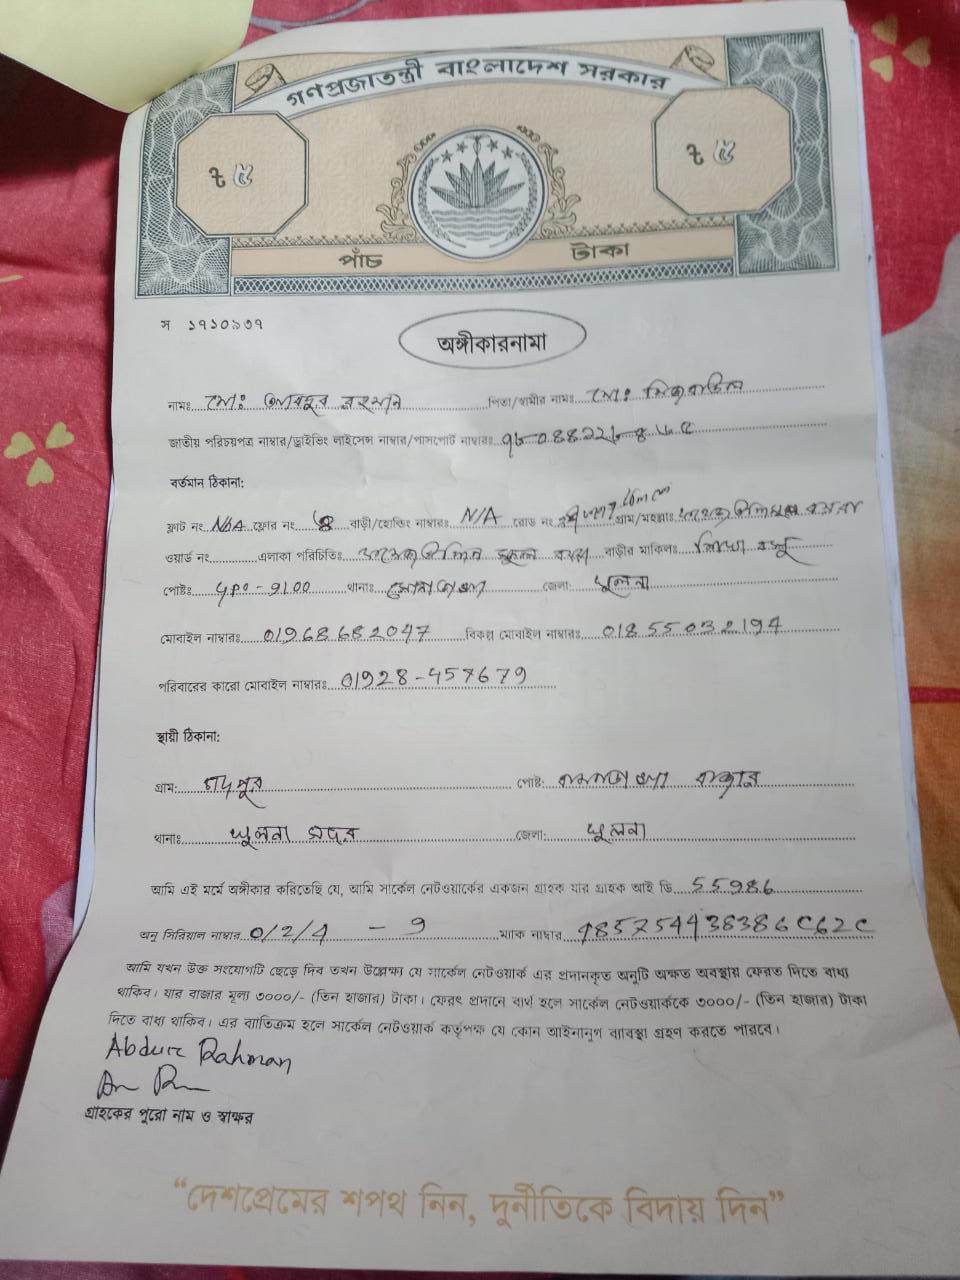 গণপ্রজাতন্ত্রী বাংলাদেশ সরকার
৳ ৫ ৳ ৫
পাঁচ টাকা
স ১৭১০৯৩৭
অঙ্গীকারনামা
নামঃ মোঃ আবদুর রহমান পিতা/স্বামীর নামঃ মোঃ
জাতীয় পরিচয়পত্র নাম্বার/ড্রাইভিং লাইসেন্স নাম্বার/পাসপোর্ট নাম্বারঃ
বর্তমান ঠিকানা:
ফ্লাট নং N/A ফ্লোর নং বাড়ী/হোল্ডিং নাম্বারঃ N/A রোড নং গ্রাম/মহল্লাঃ
ওয়ার্ড নং এলাকা পরিচিতিঃ বাড়ীর মালিকঃ
পোষ্টঃ GPO-9100 থানাঃ সোনাডাঙ্গা জেলা: খুলনা
মোবাইল নাম্বারঃ 01968682047 বিকল্প মোবাইল নাম্বারঃ 01855032194
পরিবারের কারো মোবাইল নাম্বারঃ 01928-457679
স্থায়ী ঠিকানা:
গ্রাম: পোষ্ট: বাজার
থানাঃ খুলনা সদর জেলা: খুলনা
আমি এই মর্মে অঙ্গীকার করিতেছি যে, আমি সার্কেল নেটওয়ার্কের একজন গ্রাহক যার গ্রাহক আই ডি 55986
অনু সিরিয়াল নাম্বার 0/2/4 - 9 ম্যাক নাম্বার 485754438386C62C
আমি যখন উক্ত সংযোগটি ছেড়ে দিব তখন উল্লেক্ষ্য যে সার্কেল নেটওয়ার্ক এর প্রদানকৃত অনুটি অক্ষত অবস্থায় ফেরত দিতে বাধ্য
থাকিব। যার বাজার মূল্য ৩০০০/- (তিন হাজার) টাকা। ফেরৎ প্রদানে ব্যর্থ হলে সার্কেল নেটওয়ার্ককে ৩০০০/- (তিন হাজার) টাকা
দিতে বাধ্য থাকিব। এর ব্যতিক্রম হলে সার্কেল নেটওয়ার্ক কর্তৃপক্ষ যে কোন আইনানুগ ব্যবস্থা গ্রহণ করতে পারবে।
Abdur Rahman
গ্রাহকের পুরো নাম ও স্বাক্ষর
“দেশপ্রেমের শপথ নিন, দুর্নীতিকে বিদায় দিন”